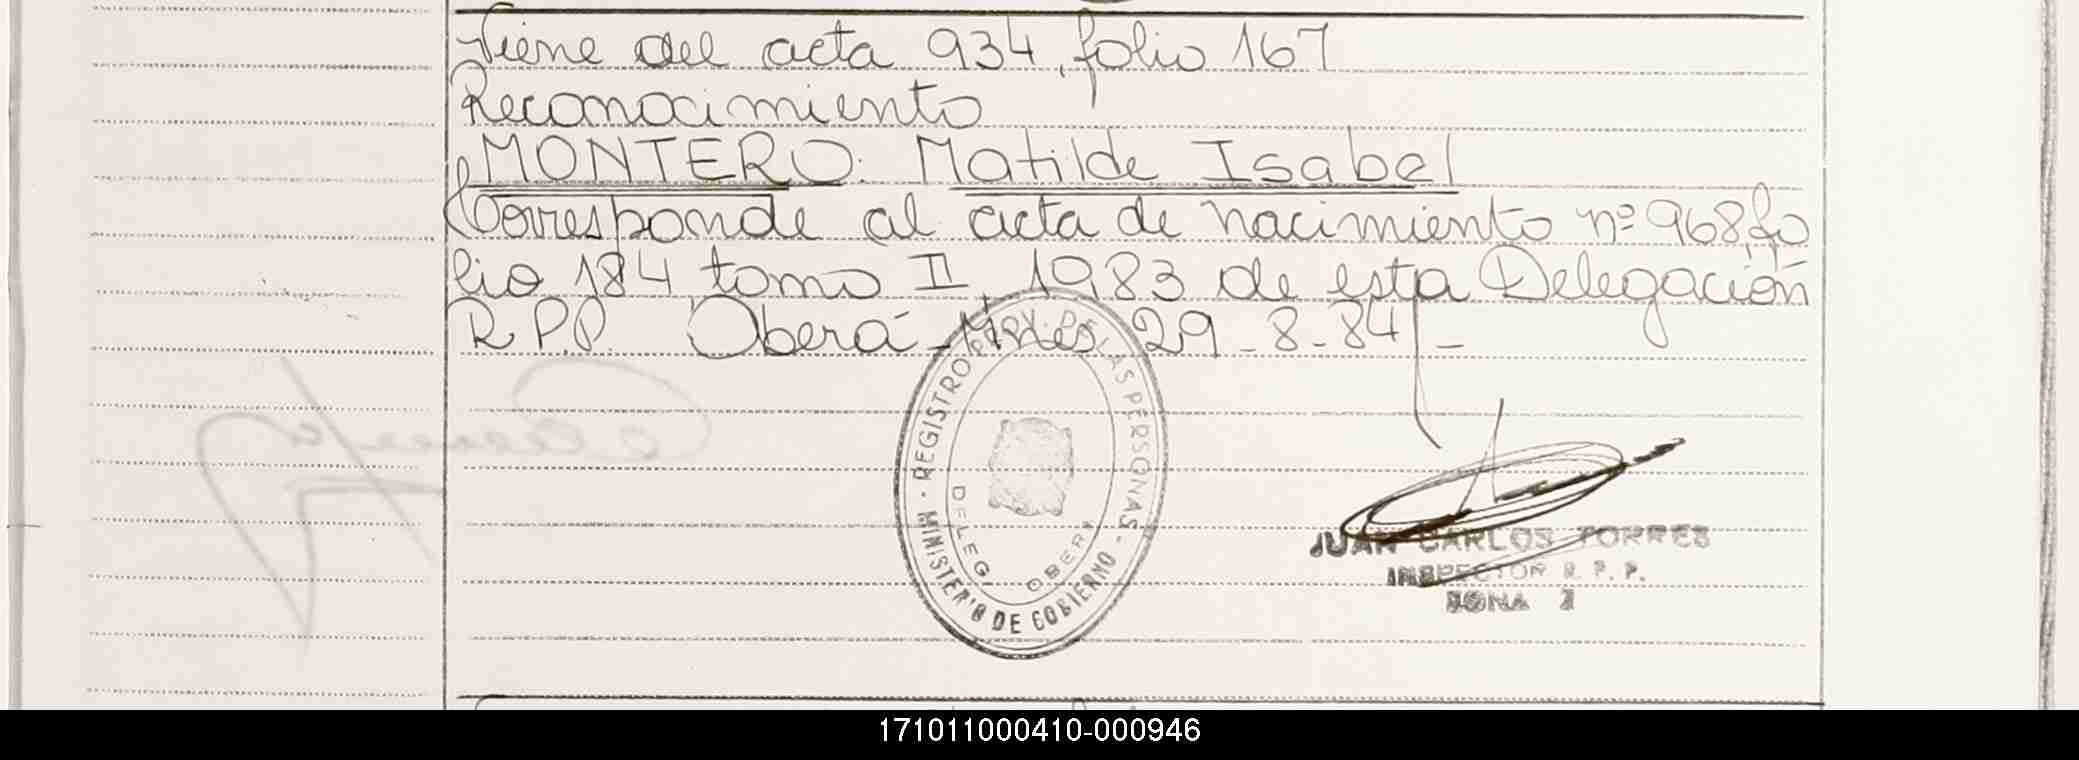 Viene del acta 934, folio 167
Reconocimiento
MONTERO: Matilde Isabel
Corresponde al acta de nacimiento nº 968, fo
lio 184 tomo II, 1983 de esta Delegación
R.P.P. Oberá - Mnes 29 - 8 - 84 -
REGISTRO PROV. DE LAS PERSONAS
MINISTERIO DE GOBIERNO
DELEG OBERA
JUAN CARLOS TORRES
INSPECTOR R. P. P.
ZONA
171011000410-000946